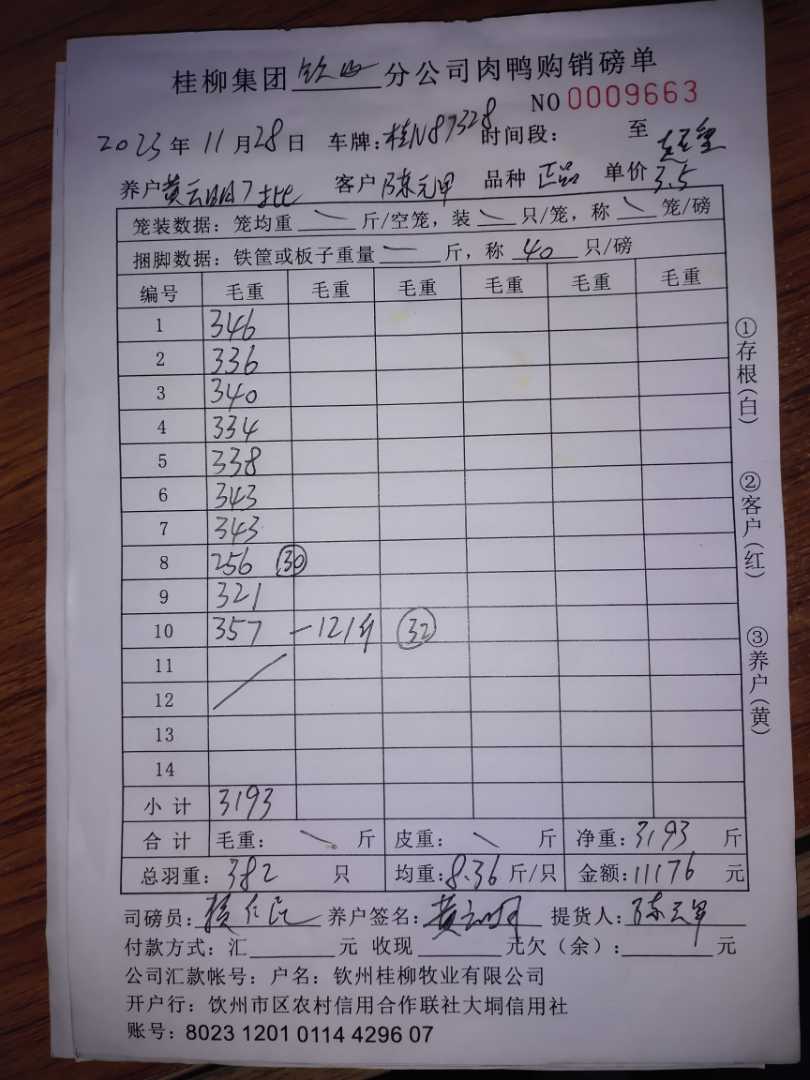 桂柳集团 钦州 分公司肉鸭购销磅单
NO 0009663
2023年11月28日 车牌:桂N87328 时间段: 至
养户 黄云明7批 客户 陈元甲 品种 正品 单价 3.5
笼装数据:笼均重 斤/空笼,装 只/笼,称 笼/磅
捆脚数据:铁筐或板子重量 斤,称 40 只/磅
编号 毛重 毛重 毛重 毛重 毛重 毛重
1 346
2 336
3 340
4 334
5 338
6 343
7 343
8 256 ㉚
9 321
10 357 -121斤 ㉜
11
12
13
14
小计 3193
合计 毛重: 斤 皮重: 斤 净重:3193 斤
总羽重:382 只 均重:8.36斤/只 金额:11176 元
司磅员: 养户签名:黄云明 提货人:陈元甲
付款方式:汇 元 收现 元欠(余): 元
公司汇款帐号:户名:钦州桂柳牧业有限公司
开户行:钦州市区农村信用合作联社大垌信用社
账号:8023 1201 0114 4296 07
①存根(白) ②客户(红) ③养户(黄)